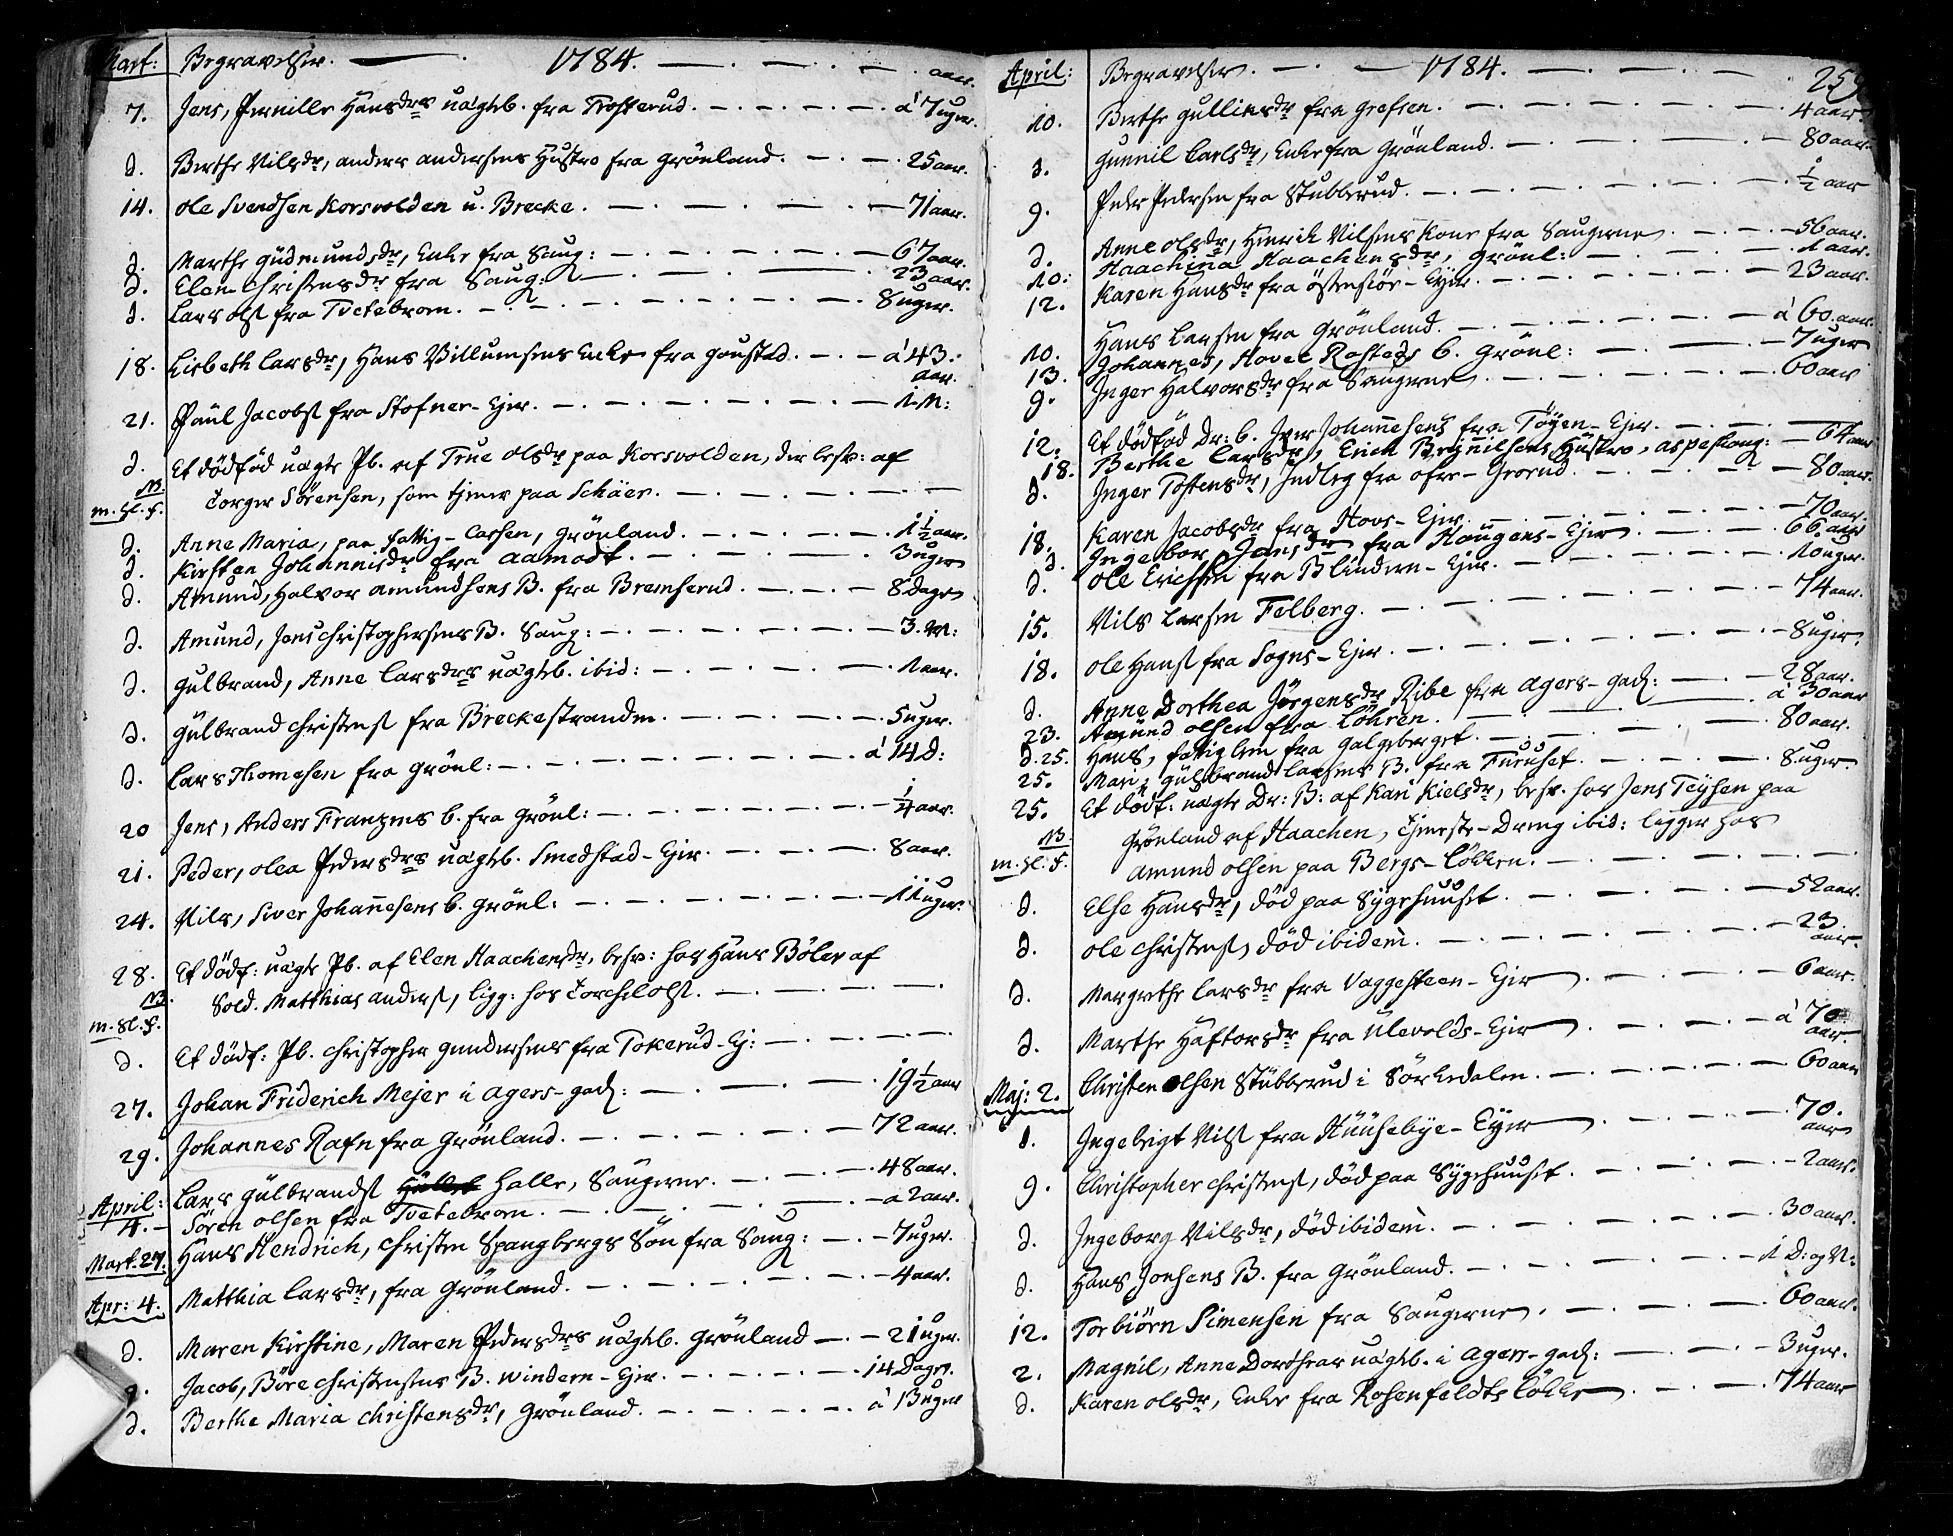 Mart: Begravelser. 1784. aar.
7. Jens, Pernille Hansdrs uägteb. fra Trosterud. à 7 uger.
d. Berthe Nilsdr, anders andersens Hustro fra Grönland. 25 aar.
14. ole Svendsen Korsvolden u. Brecke. 71 aar.
d. Marthe Gudmundsdr, Enke fra Saug: 67 aar.
d. Elen Christensdr fra Saug: 23 aar.
d. Lars olss fra Tvetebroen. 8 uger.
18. Lisbeth Larsdr, Hans Villumsens Enke fra Goustad. à 43.
aar.
21. Paul Jacobss fra Stofner-Ejer. 1 M:
d. Et dödföd uägte Pb. af True olsdr paa Korsvolden, der besv: af
NB. Torger Sörensen, som tjener paa Schäer.
m. Sl. F.
d. Anne Maria, paa fattig-Cassen, Grönland. 1 1/2 aar.
d. Kirsten Johannisdr fra Aamodt. 3 uger
d. Amund, Halvor amundsens B. fra Bremserud. 8 Dage
d. Amund, Jens Christophersens B. Saug: 3. M:
d. Gulbrand, Anne Larsdrs uägteb. ibid: 1 aar.
d. Gulbrand Christenss fra Breckestranden. 5 uger.
d. Lars Thomesen fra Grönl: à 14 D:
20 Jens, Anders Franzens b. fra Grönl: 1/4 aar.
21. Peder, olea Pedersdrs uägteb. Smedstad-Ejer. 8 aar.
24. Nils, Siver Johannesens b. Grönl: 11 uger.
28. Et dödf: uägte Pb. af Elen Haachensdr, besv: hos Hans Böler af
NB. Sold. Matthias anderss, ligg: hos Torchel olss.
m. Sl. F.
d. Et dödf: Pb. Christopher Gundersens fra Tokerud-Ej:
27. Johan Friderich Mejer i Agers-gad: 19 1/2 aar
29. Johannes Rafn fra Grönland. 72 aar.
April: Lars Gulbrandss Halle, Saugerne. 48 aar.
4. Sören olsen fra Tvetebroen. à 2 aar.
Mart. 27. Hans Hendrich, Christen Spangbergs Sön fra Saug: 7 uger.
Apr: 4. Matthia Larsdr, fra Grönland. 4 aar.
d. Maren Kirstine, Maren Pedersdrs uägteb. Grönland 21 uger.
Jacob, Böre Christensens B. Windern-Ejer. 14 Dage.
d. Berthe Maria Christensdr, Grönland. à 13 uger
April: Begravelser. 1784. 259
10. Berthe Gulliksdr fra Grefsen. 4 aar
d. Gunnil Carlsdr, Enke fra Grönland. 80 aar.
9. Peder Pedersen fra Stubberud. 1/2 aar
d. Anne olsdr, Henrik Nilsens Kone fra Saugerne 56 aar.
10: Haachina Haachensdr, Grönl: 1 aar.
12. Karen Hansdr fra östensiör-Ejer. 23 aar.
10. Hans Larsen fra Grönland. à 60. aar.
13. Johannes, Hovel Rosteds b. Grönl: 7 uger
9. Inger Halvorsdr fra Saugerne 60 aar
12. Et dödföd Dr: b. Iver Johannesens fra Töyen-Ejer.
18. Berthe Larsdr, Erich Brynnilsens Hustro, aspeskoug: 64 aar
d. Inger Tostensdr, Indleg fra ofre-Grorud 80 aar.
18. Karen Jacobsdr fra Hovs-Ejer. 70 aar.
d. Ingebor Jensdr fra Haugens-Ejer 66 aar
d. Ole Erichsen fra Blindern-Ejer. 10 uger.
15. Nils Larsen Felberg. 74 aar.
18. ole Hanss fra Sogns-Ejer. 8 uger.
d. Anne Dorthea Jörgensdr Ribe fra Agers-gad: 28 aar.
23. Amund olsen fra Löhren. à 30 aar
d. 25. Hans, fattiglem fra Galgeberget. 80 aar.
25. Mari, Gulbrand Larsens B. fra Furuset. 8. uger.
25. Et dödf: uägte Dr: B: af Kari Kielsdr, besv. hos Jens Teysen paa
NB. Grönland af Haachen, Tjeneste-Dreng ibid: ligger hos
m. Sl. F. Amund olsen paa Bergs-Lökken.
d. Else Hansdr, död paa Sygehuuset. 52 aar.
d. ole Christenss, död ibidem. 23.
aar.
d. Margrethe Larsdr fra Vaggesteen-Ejer 6 aar.
d. Marthe Haftorsdr fra Ulevolds-Ejer à 70
aar.
Maj: 2. Christen olsen Stubberud i Sörkedalen. 60 aar
8. Ingebrigt Nilss fra Huusebye-Eyer 70.
aar
9. Christopher Christenss, död paa Sygehuuset. 2 aar.
d. Ingeborg Nilsdr, död ibidem. 30 aar.
d. Hans Jonsens B. fra Grönland. 1 D: og N:
12. Torbiörn Simensen fra Saugerne. 60 aar.
2. Magnil, Anne Dortheas uägteb. i Agers-gad: 3 uger.
d. Karen olsdr, Enke fra Rosenfeldts Lökke 74 aar